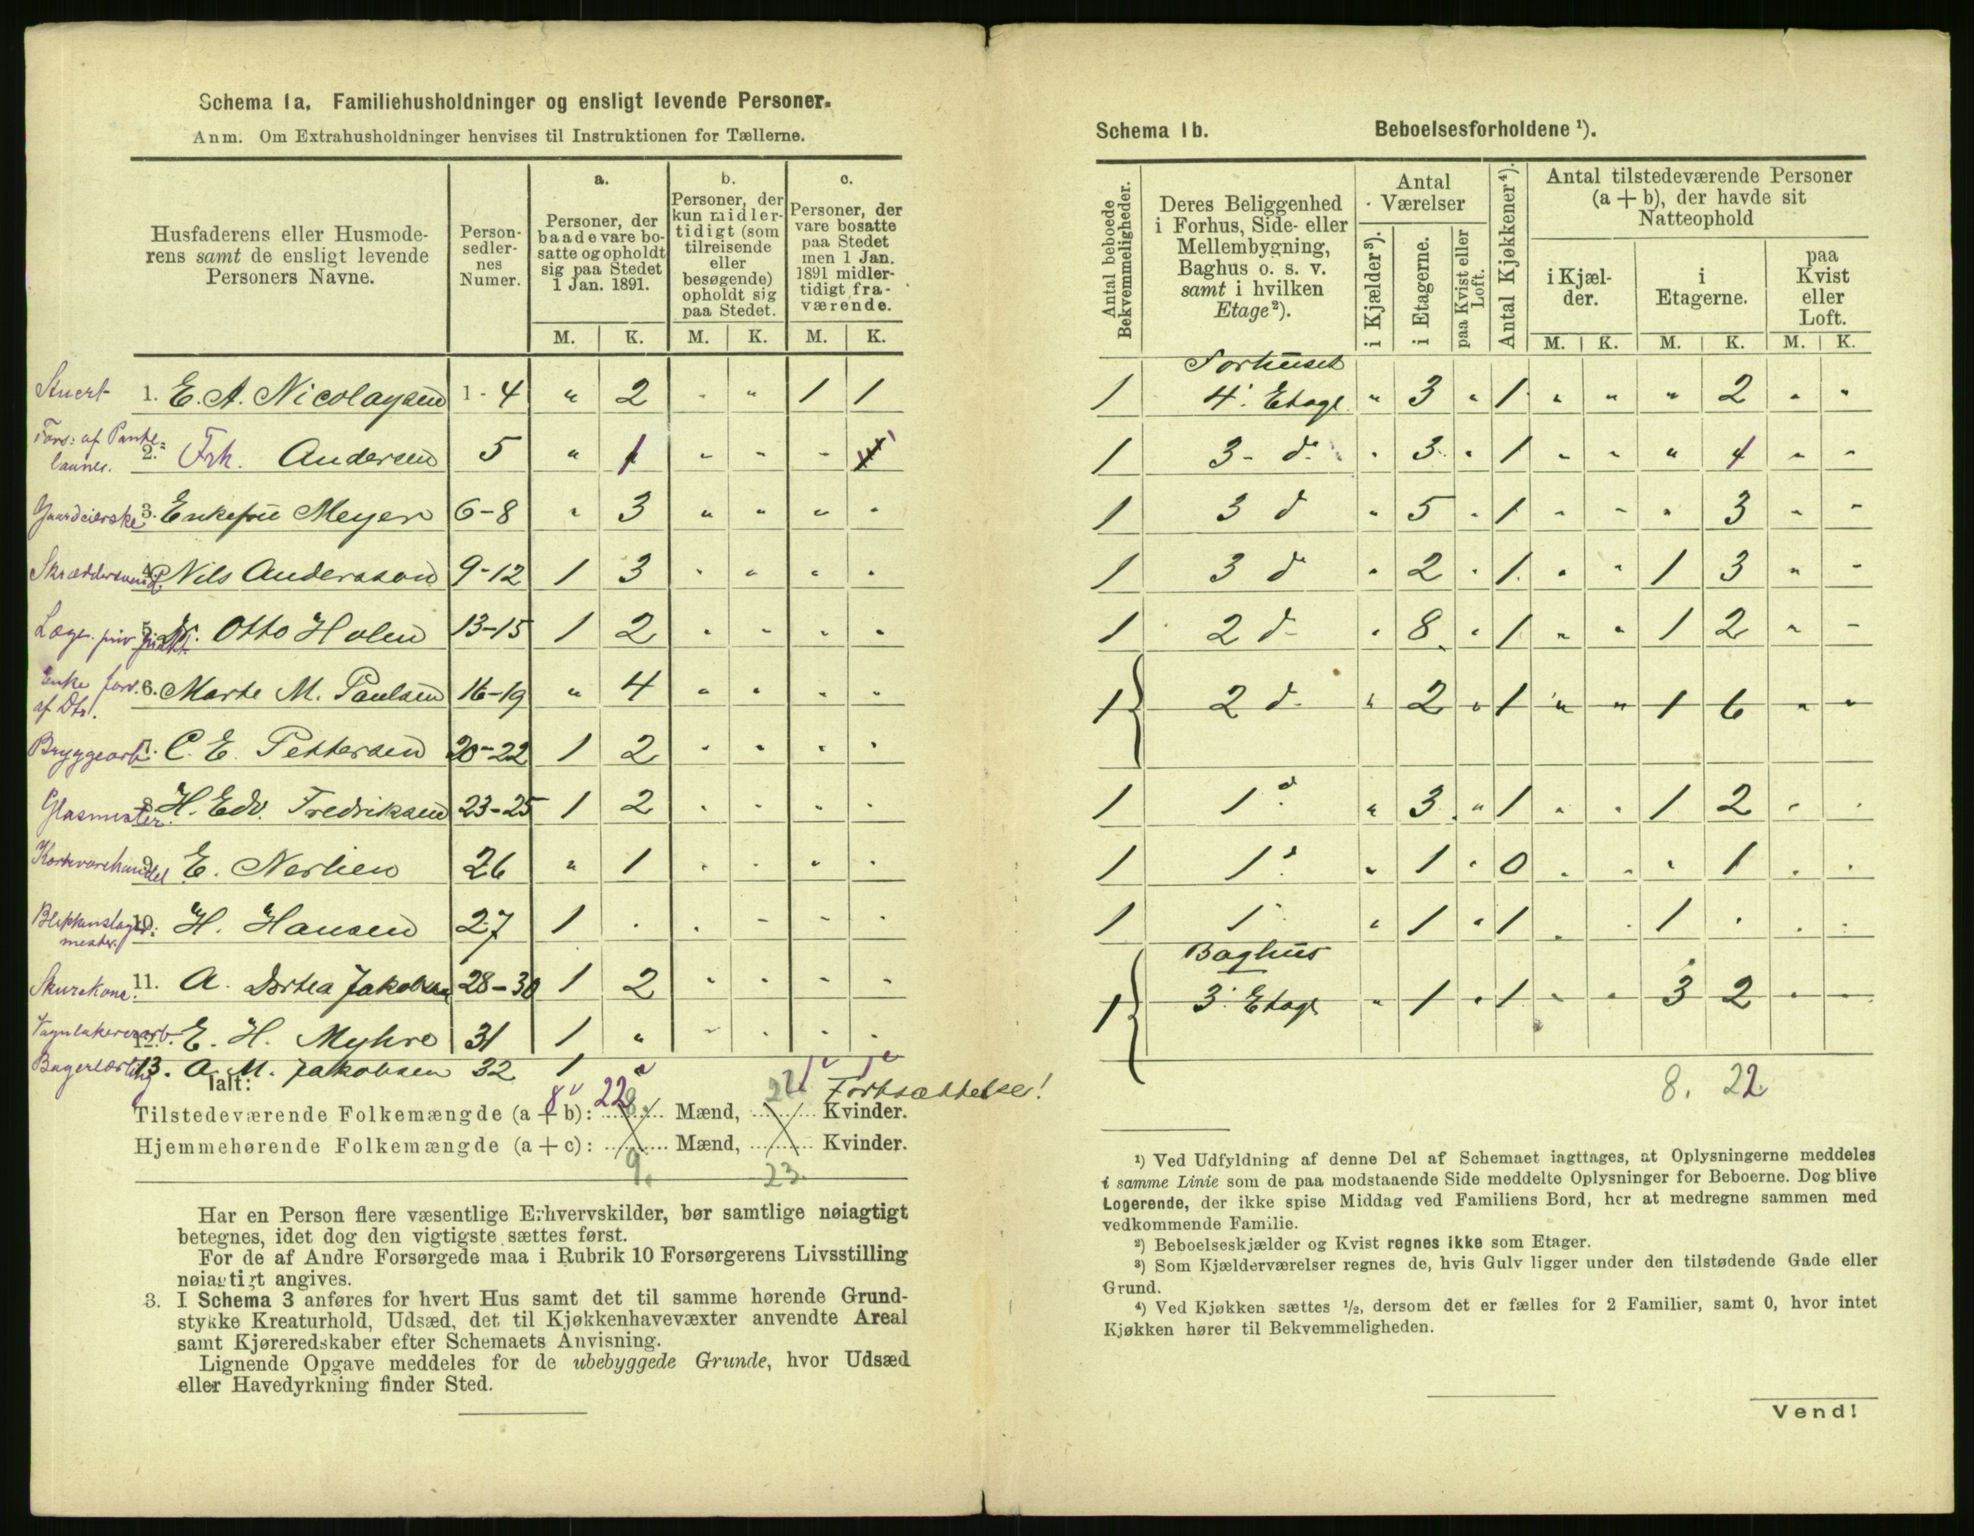 Schema 1a. Familiehusholdninger og ensligt levende Personer.
Anm. Om Extrahusholdninger henvises til Instruktionen for Tællerne.
Husfaderens eller Husmode-
rens samt de ensligt levende
Personers Navne.
Person-
sedler-
nes
Numer.
a.
Personer, der
baade vare bo-
satte og opholdt
sig paa Stedet
1 Jan. 1891.
b.
Personer, der
kun midler-
tidigt (som
tilreisende
eller
besøgende)
opholdt sig
paa Stedet.
c.
Personer, der
vare bosatte
paa Stedet
men 1 Jan.
1891 midler-
tidigt fra-
værende.
M. K. M. K. M. K.
Stuert 1. E. A. Nicolaysen 1-4 " 2 " " 1 1
Fors: af Pante-
laaner. 2. Frk. Andersen 5 " 1 " " "
Gaardeierske 3. Enkefru Meyer 6-8 " 3 " " " "
Skræddersvend 4. Nils Andersson 9-12 1 3 " " " "
Læge. priv. prakt. 5. Dr. Otto Holm 13-15 1 2 " " " "
Enke fors.
af Dtr. 6. Marte M. Paulsen 16-19 " 4 " " " "
Bryggearb. 7. C. E. Pettersen 20-22 1 2 " " " "
Glasmester. 8. H. Edv. Fredriksen 23-25 1 2 " " " "
Kortevarehandel 9. E. Nerlien 26 " 1 " " " "
Blikkenslager-
mester. 10. H. Hansen 27 1 " " " " "
Skurekone. 11. A. Dortea Jakobsen 28-30 1 2 " " " "
12. E. H. Myhre 31 1 " " " " "
Bagerlærling 13. A. M. Jakobsen 32 1 "
Ialt: 8 22 1 1 Fortsættelse!
Tilstedeværende Folkemængde (a + b): 8. Mænd, 22. Kvinder.
Hjemmehørende Folkemængde (a + c): 9. Mænd, 23. Kvinder.
Har en Person flere væsentlige Erhvervskilder, bør samtlige nøiagtigt
betegnes, idet dog den vigtigste sættes først.
For de af Andre Forsørgede maa i Rubrik 10 Forsørgerens Livsstilling
nøiagtigt angives.
3. I Schema 3 anføres for hvert Hus samt det til samme hørende Grund-
stykke Kreaturhold, Udsæd, det til Kjøkkenhavevæxter anvendte Areal
samt Kjøreredskaber efter Schemaets Anvisning.
Lignende Opgave meddeles for de ubebyggede Grunde, hvor Udsæd
eller Havedyrkning finder Sted.
Schema 1b. Beboelsesforholdene ¹).
Antal beboede
Bekvemmeligheder.
Deres Beliggenhed
i Forhus, Side- eller
Mellembygning,
Baghus o. s. v.
samt i hvilken
Etage²).
Antal
Værelser
i Kjælder³).
i Etagerne.
paa Kvist eller
Loft.
Antal Kjøkkener⁴).
Antal tilstedeværende Personer
(a + b), der havde sit
Natteophold
i Kjæl-
der.
i
Etagerne.
paa
Kvist
eller
Loft.
M. K. M. K. M. K.
Forhuset
1 4. Etage " 3 " 1 " " " 2 " "
1 3 - d. " 3 " 1 " " " 4 " "
1 3 d " 5 " 1 " " " 3 " "
1 3 d " 2 " 1 " " 1 3 " "
1 2 d " 8 " 1 " " 1 2 " "
1 2 d " 2 " 1 " " 1 6 " "
1 1 d " 3 " 1 " " 1 2 " "
1 1 d " 1 " 0 " " " 1 " "
1 1 " " 1 " 1 " " 1 " " "
Baghus
1 3. Etage " 1 " 1 " " 3 2 " "
8. 22
¹) Ved Udfyldning af denne Del af Schemaet iagttages, at Oplysningerne meddeles
i samme Linie som de paa modstaaende Side meddelte Oplysninger for Beboerne. Dog blive
Logerende, der ikke spise Middag ved Familiens Bord, her at medregne sammen med
vedkommende Familie.
²) Beboelseskjælder og Kvist regnes ikke som Etager.
³) Som Kjælderværelser regnes de, hvis Gulv ligger under den tilstødende Gade eller
Grund.
⁴) Ved Kjøkken sættes ½, dersom det er fælles for 2 Familier, samt 0, hvor intet
Kjøkken hører til Bekvemmeligheden.
Vend!